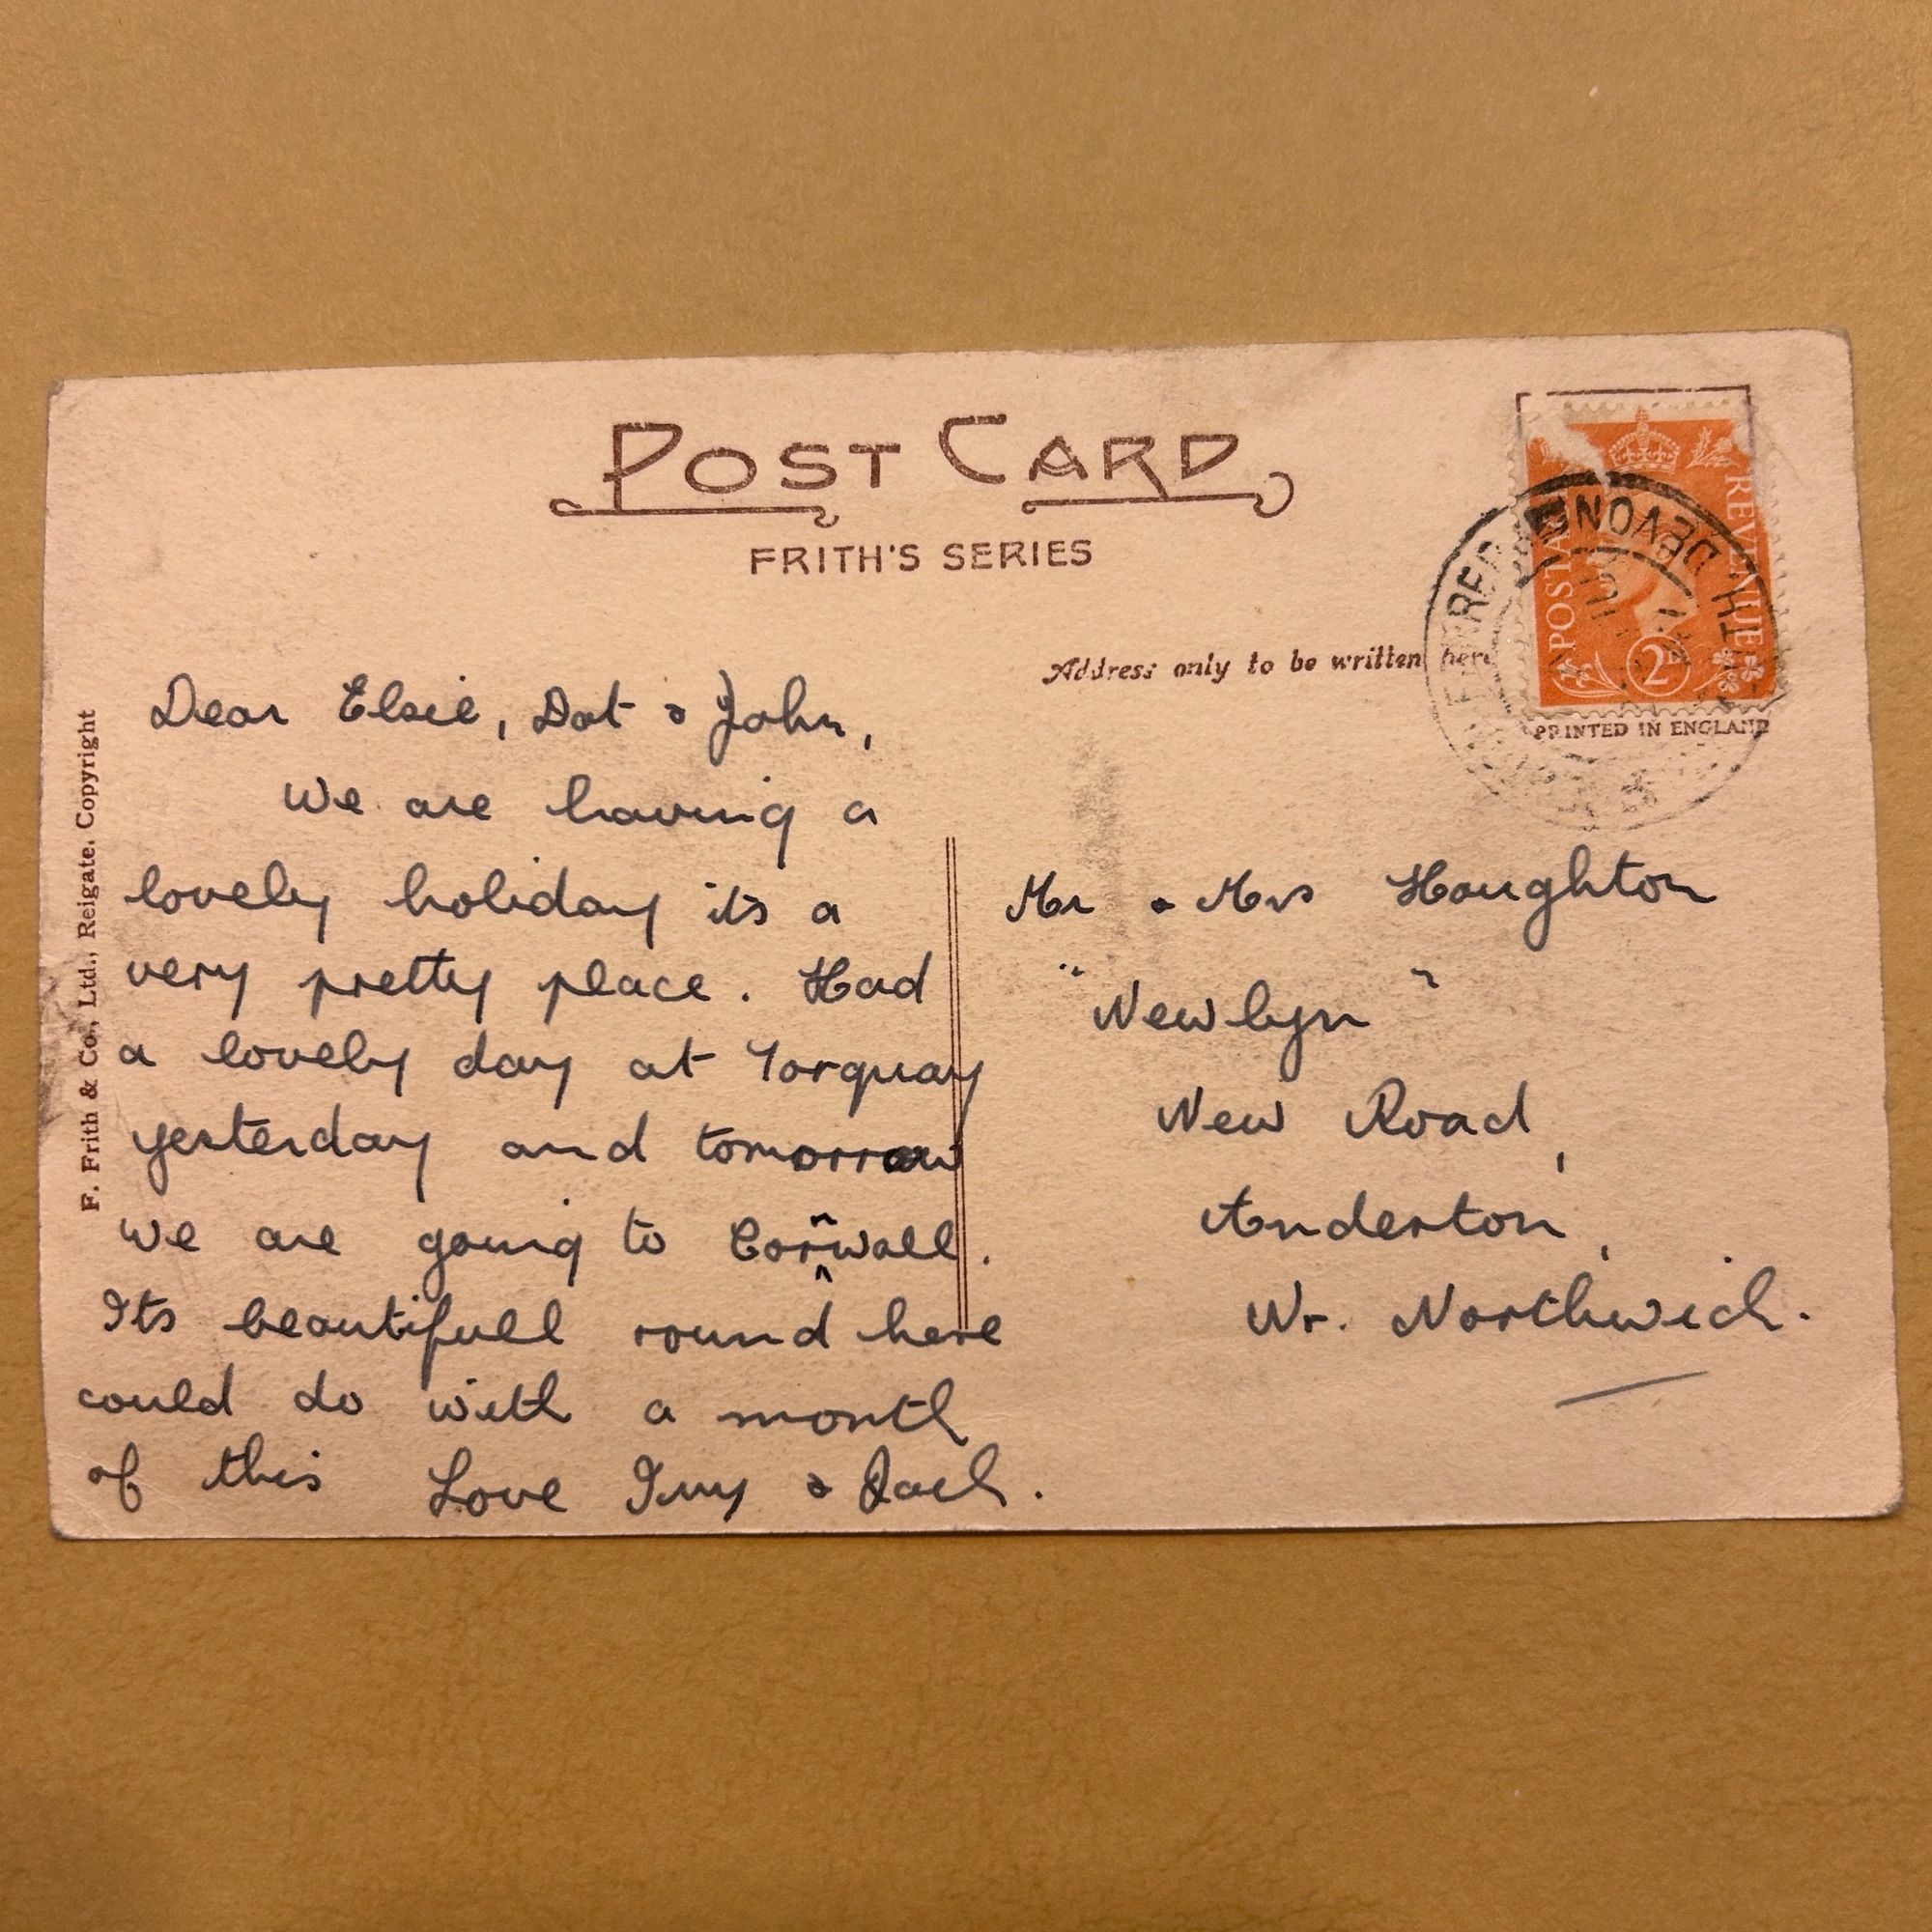 POST CARD
FRITH'S SERIES
Address only to be written here
POSTAGE
REVENUE
2D
DEVON
PRINTED IN ENGLAND
F. Frith & Co., Ltd., Reigate. Copyright
Dear Elsie, Dot & John,
We are having a
lovely holiday its a
very pretty place. Had
a lovely day at Torquay
yesterday and tomorrow
we are going to Cornwall.
Its beautifull round here
could do with a month
of this Love Ivy & Jack.
Mr & Mrs Houghton
"Newlyn"
New Road,
Anderton,
Nr. Northwich.